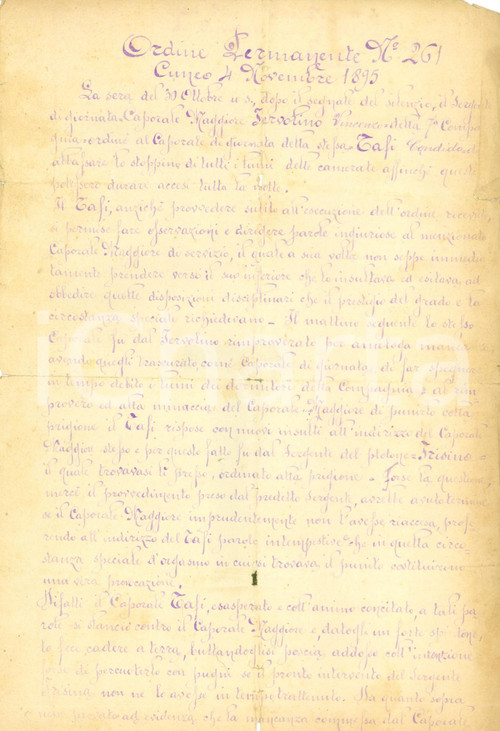 Ordine Permanente N° 261
Cuneo 4 Novembre 1895
La sera del 31 Ottobre u.s. dopo il segnale del silenzio, il
di giornata Caporale Maggiore Iervolino Vincenzo della 7ª Compa
gnia ordinò al Caporale di giornata della stessa Tafi
abbassare lo stoppino di tutti i lumi delle camerate affinchè questi
potessero durare accesi tutta la notte.
Il Tafi, anzichè provvedere subito all'esecuzione dell'ordine ricevuto,
si permise fare osservazioni e dirigere parole ingiuriose al menzionato
Caporale Maggiore di servizio, il quale a sua volta non seppe immedia
tamente prendere verso il suo inferiore che lo insultava ed esitava ad
obbedire quelle disposizioni disciplinari che il prestigio del grado e la
circostanza speciale richiedevano - Il mattino seguente lo stesso
Caporale fu dal Iervolino rimproverato per analoga mancanza
avendo quegli trascurato, come Caporale di giornata, di far spegnere
in tempo debito i lumi dei della Compagnia e al rim
provero ed alla minaccia del Caporale Maggiore di punirlo colla
prigione il Tafi rispose con nuovi insulti all'indirizzo del Caporale
Maggiore stesso e per questo fatto fu dal Sergente del plotone Trisina =
il quale trovavasi lì presso, ordinato alla prigione - Forse la questione,
mercè il provvedimento preso dal predetto Sergente, avrebbe avuto termine
se il Caporale Maggiore imprudentemente non l'avesse riaccesa, profe
rendo all'indirizzo del Tafi parole intempestive che in quella circo
stanza speciale d'orgasmo in cui si trovava il punito costituirono
una vera provocazione.
Difatti il Caporale Tafi, esasperato e coll'animo concitato, a tali pa
role si slanciò contro il Caporale Maggiore e, datogli un forte
lo fece cadere a terra, buttandoglisi poscia addosso coll'intenzione
forse di percuoterlo con pugni se il pronto intervento del Sergente
Trisina non ne lo avesse in tempo trattenuto. Da quanto sopra
ad evidenza che la mancanza commessa dal Caporale